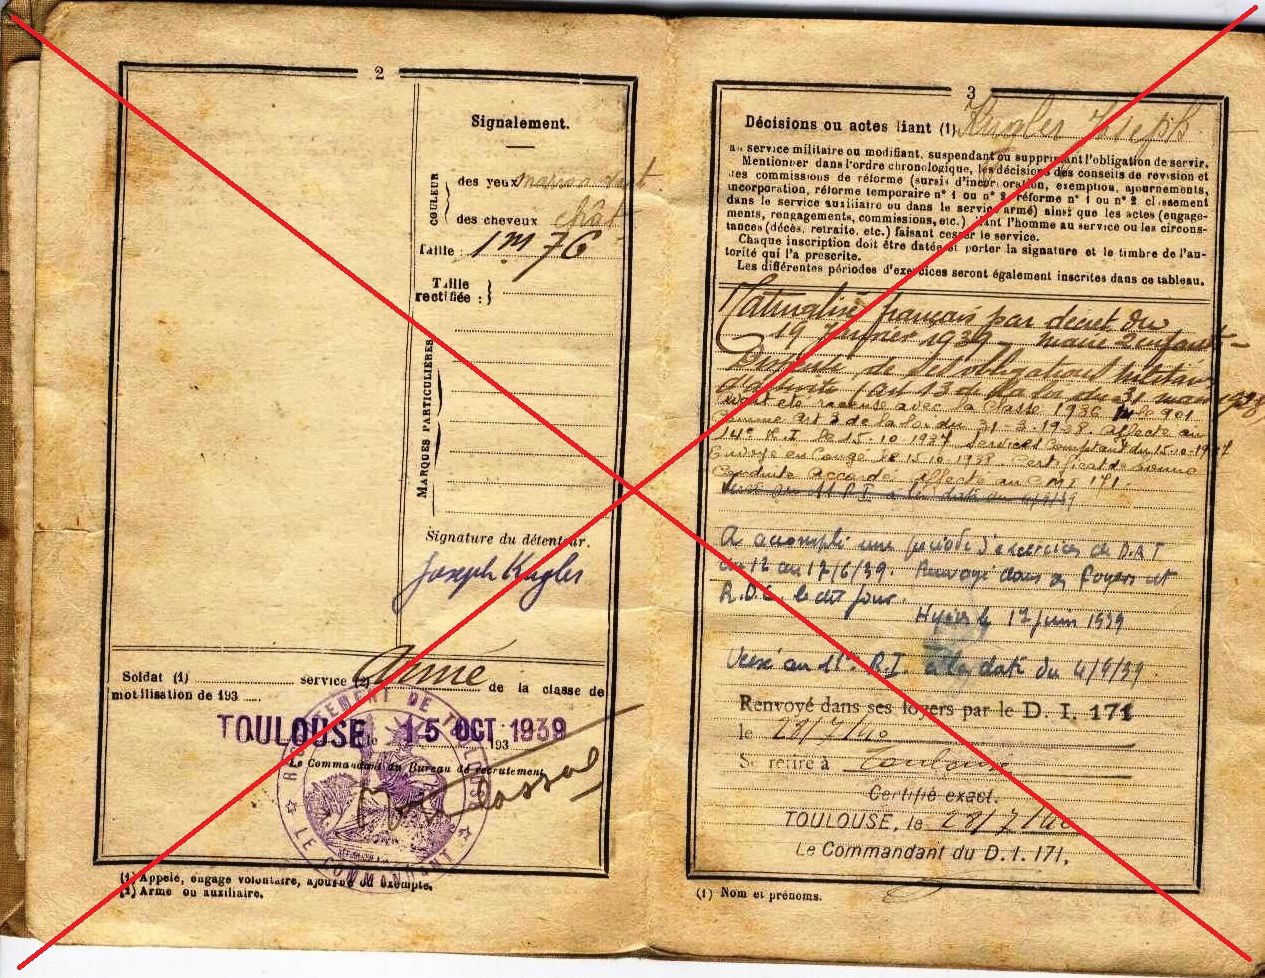 2
Signalement.
COULEUR
des yeux marron vert
des cheveux chât
Taille : 1m 76
Taille
rectifiée :
MARQUES PARTICULIÈRES
Signature du détenteur.
Joseph Kugler
Soldat (1) service (2) Armé de la classe de
mobilisation de 193
TOULOUSE le 15 OCT 1939
193
Le Commandant du Bureau de recrutement,
RECRUTEMENT DE
LE COMMANDANT
(1) Appelé, engagé volontaire, ajourné ou exempté.
(2) Armé ou auxiliaire.
3
Décisions ou actes liant (1) Kugler Joseph
au service militaire ou modifiant, suspendant ou supprimant l'obligation de servir.
Mentionner dans l'ordre chronologique, les décisions des conseils de révision et
des commissions de réforme (sursis d'incorporation, exemption, ajournements,
incorporation, réforme temporaire n° 1 ou n° 2, réforme n° 1 ou n° 2 classement
dans le service auxiliaire ou dans le service armé) ainsi que les actes (engage-
ments, rengagements, commissions, etc.) liant l'homme au service ou les circons-
tances (décès, retraite, etc.) faisant cesser le service.
Chaque inscription doit être datée et porter la signature et le timbre de l'au-
torité qui l'a prescrite.
Les différentes périodes d'exercices seront également inscrites dans ce tableau.
Naturalisé français par décret du
19 Janvier 1939 - marié 2 enfants
de ses obligations militaires
d'activité (art 13 de la loi du 31 mars 1928)
avec la classe 1936 901
art 3 de la loi du 31-3-1928. Affecté au
14e R.I. le 15.10.1937 Services comptant du 15.10.1937
Envoyé en congé le 15.10.1938. Certificat de bonne
Conduite accordé affecté au CM. 171.
11 R.I. à la date du 4/9/39
A accompli une période d'exercices de D.A.T
du 12 au 17/6/39. Renvoyé dans ses foyers
R.D.C. le dit jour.
Hyères le 17 juin 1939
Versé au 11e R.I. à la date du 4/9/39.
Renvoyé dans ses foyers par le D. I. 171
le 28/7/40
Se retire à Toulouse
Certifié exact.
TOULOUSE, le 28/7/40
Le Commandant du D. I. 171,
(1) Nom et prénoms.